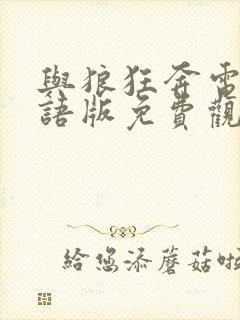 與狼狂奔電
語版免費觀
給您添蘑菇啦